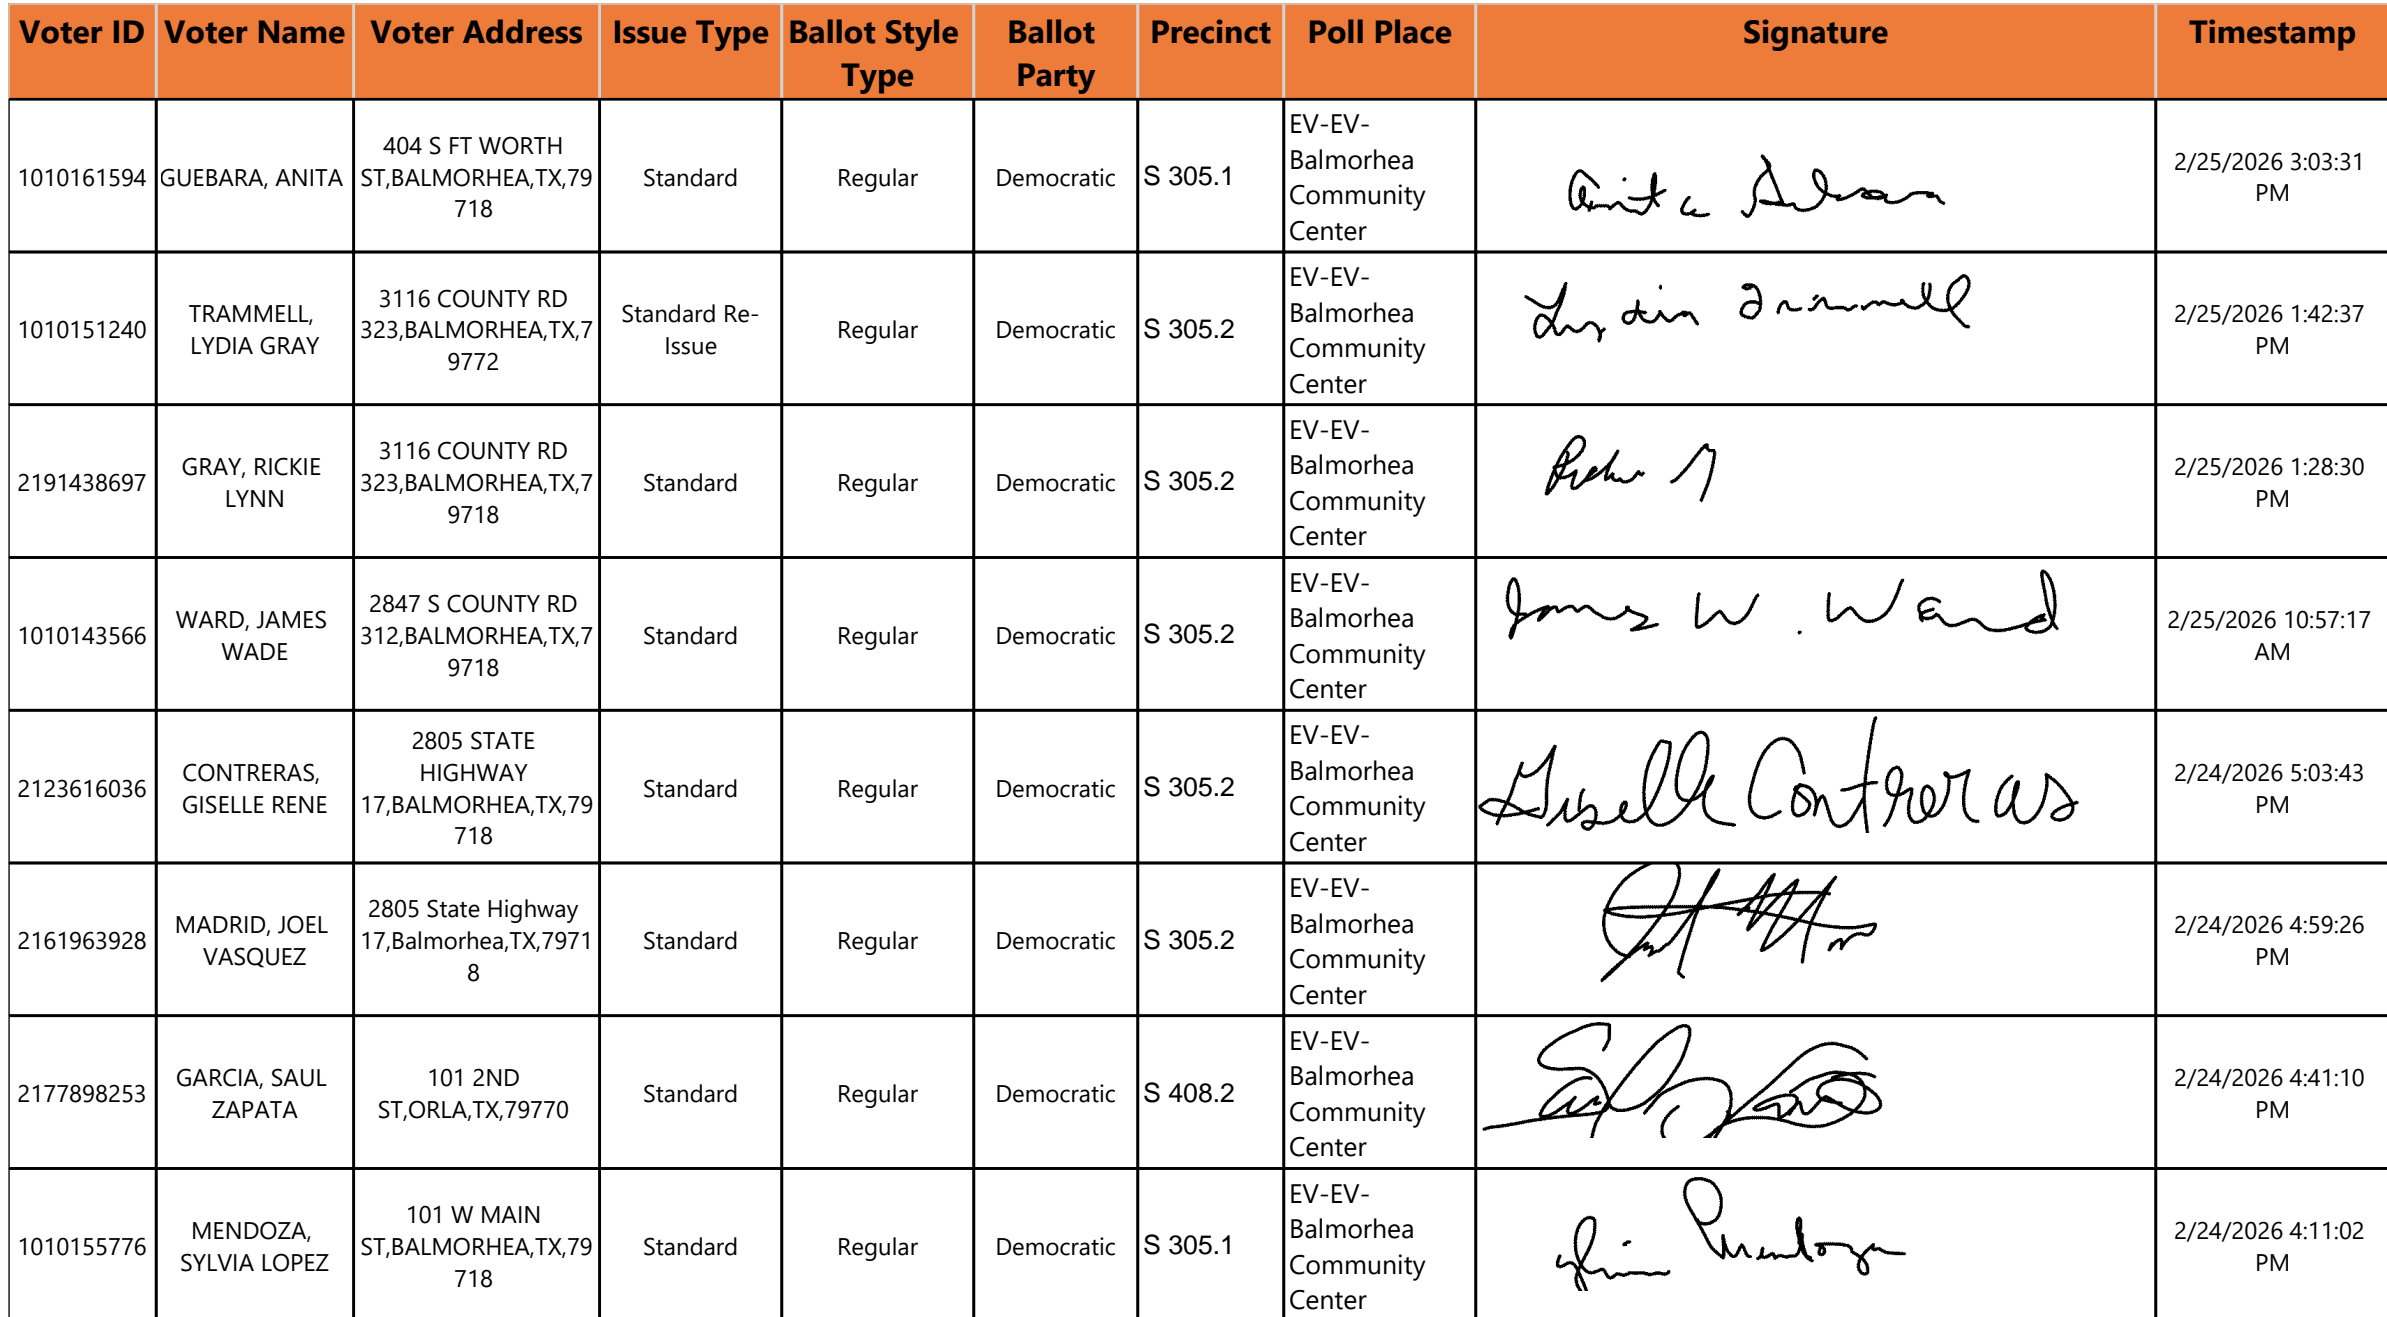 Voter ID Voter Name Voter Address Issue Type Ballot Style Type Ballot Party Precinct Poll Place Signature Timestamp
1010161594
GUEBARA, ANITA
404 S FT WORTH
ST,BALMORHEA,TX,79
718
Standard
Regular
Democratic
S 305.1
EV-EV-
Balmorhea
Community
Center
Anita
2/25/2026 3:03:31
PM
1010151240
TRAMMELL,
LYDIA GRAY
3116 COUNTY RD
323,BALMORHEA,TX,7
9772
Standard Re-
Issue
Regular
Democratic
S 305.2
EV-EV-
Balmorhea
Community
Center
Lydia Trammell
2/25/2026 1:42:37
PM
2191438697
GRAY, RICKIE
LYNN
3116 COUNTY RD
323,BALMORHEA,TX,7
9718
Standard
Regular
Democratic
S 305.2
EV-EV-
Balmorhea
Community
Center
2/25/2026 1:28:30
PM
1010143566
WARD, JAMES
WADE
2847 S COUNTY RD
312,BALMORHEA,TX,7
9718
Standard
Regular
Democratic
S 305.2
EV-EV-
Balmorhea
Community
Center
James W. Ward
2/25/2026 10:57:17
AM
2123616036
CONTRERAS,
GISELLE RENE
2805 STATE
HIGHWAY
17,BALMORHEA,TX,79
718
Standard
Regular
Democratic
S 305.2
EV-EV-
Balmorhea
Community
Center
Giselle Contreras
2/24/2026 5:03:43
PM
2161963928
MADRID, JOEL
VASQUEZ
2805 State Highway
17,Balmorhea,TX,7971
8
Standard
Regular
Democratic
S 305.2
EV-EV-
Balmorhea
Community
Center
2/24/2026 4:59:26
PM
2177898253
GARCIA, SAUL
ZAPATA
101 2ND
ST,ORLA,TX,79770
Standard
Regular
Democratic
S 408.2
EV-EV-
Balmorhea
Community
Center
2/24/2026 4:41:10
PM
1010155776
MENDOZA,
SYLVIA LOPEZ
101 W MAIN
ST,BALMORHEA,TX,79
718
Standard
Regular
Democratic
S 305.1
EV-EV-
Balmorhea
Community
Center
Mendoza
2/24/2026 4:11:02
PM